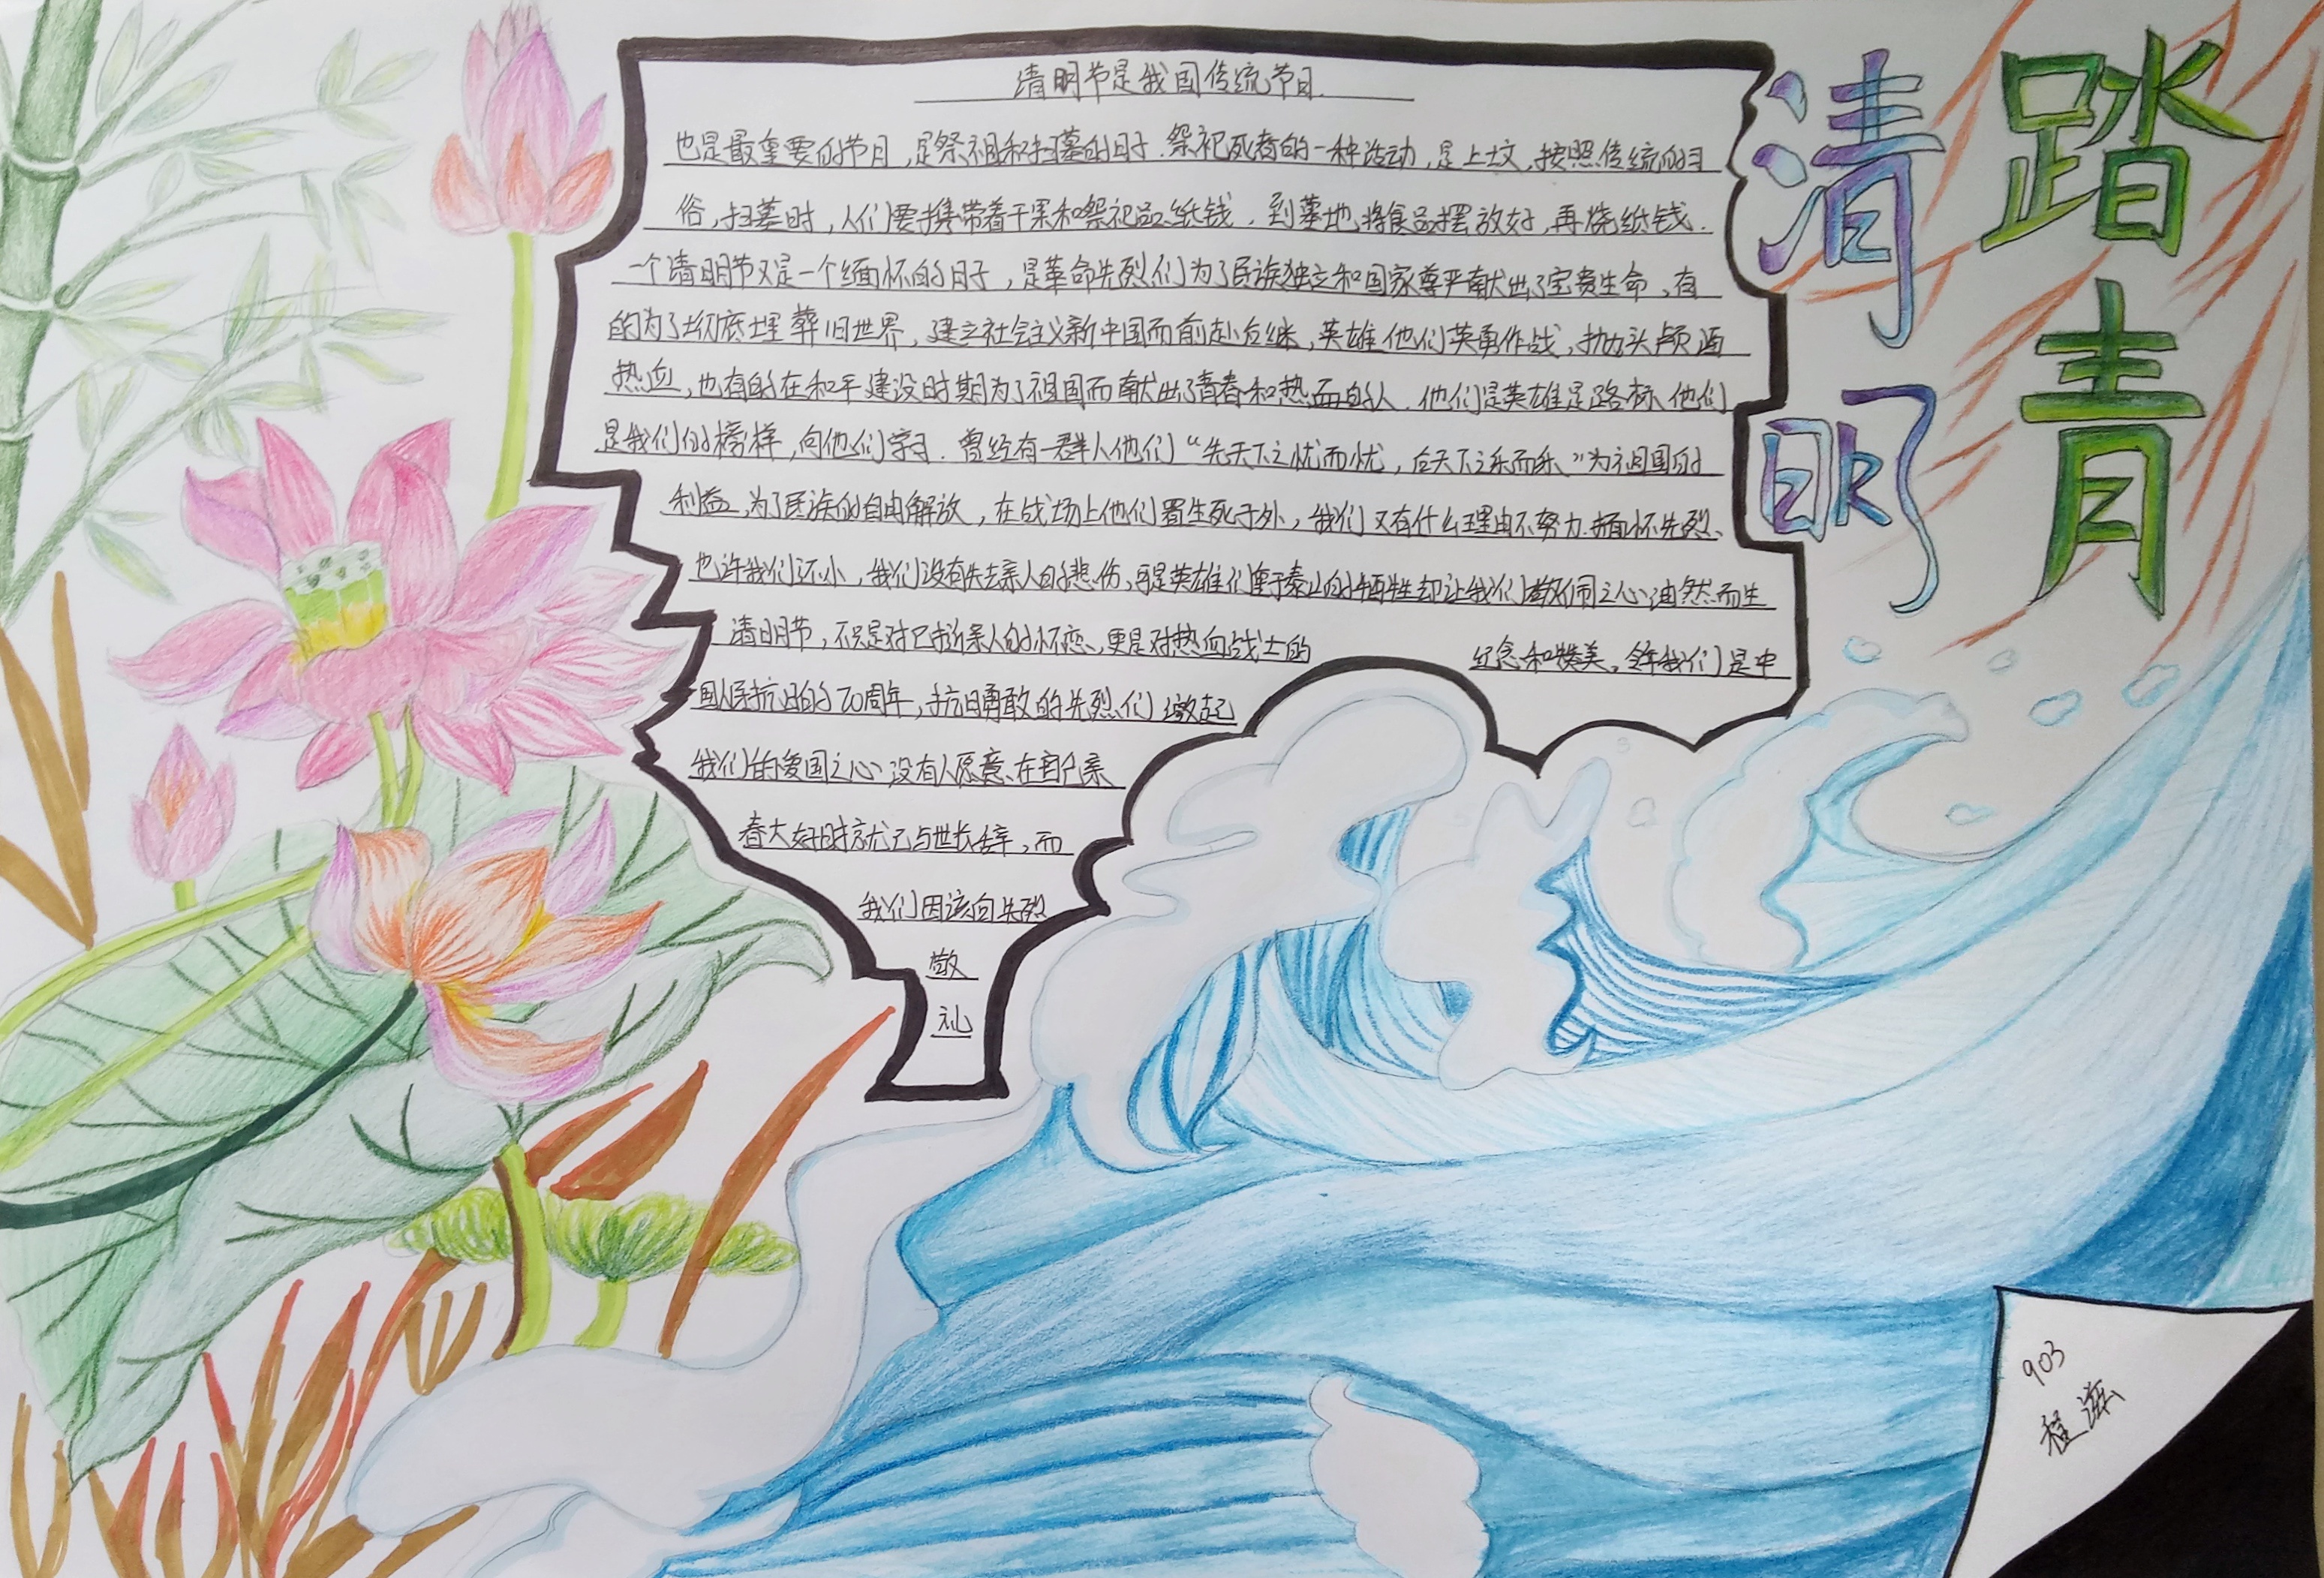 清明节是我国传统节日.
也是最重要的节日,是祭祖和扫墓的日子.祭祀死者的一种活动,是上坟,按照传统的习
俗,扫墓时,人们要携带着干果和祭祀品纸钱.到墓地将食品摆放好,再烧纸钱.
一个清明节又是一个缅怀的日子,是革命先烈们为了民族独立和国家尊严献出了宝贵生命,有
的为了彻底埋葬旧世界,建立社会主义新中国而前赴后继,英雄他们英勇作战,抛头颅洒
热血,也有的在和平建设时期为了祖国而献出了青春和热血的人.他们是英雄是路标、他们
是我们的榜样,向他们学习.曾经有一群人他们“先天下之忧而忧,后天下之乐而乐、”为祖国的
利益,为了民族的自由解放,在战场上他们置生死于外,我们又有什么理由不努力.缅怀先烈、
也许我们还小,我们没有失去亲人的悲伤、可是英雄们重于泰山的牺牲却让我们敬佩之心油然而生
清明节,不只是对已逝亲人的怀恋、更是对热血战士的 纪念和赞美,今年我们是中
国人民抗日的70周年,抗日勇敢的先烈们激起
我们的爱国之心没有人愿意、在
春大好时就已与世长辞,而
我们因该向先烈
敬
礼
清明
踏青
903
程